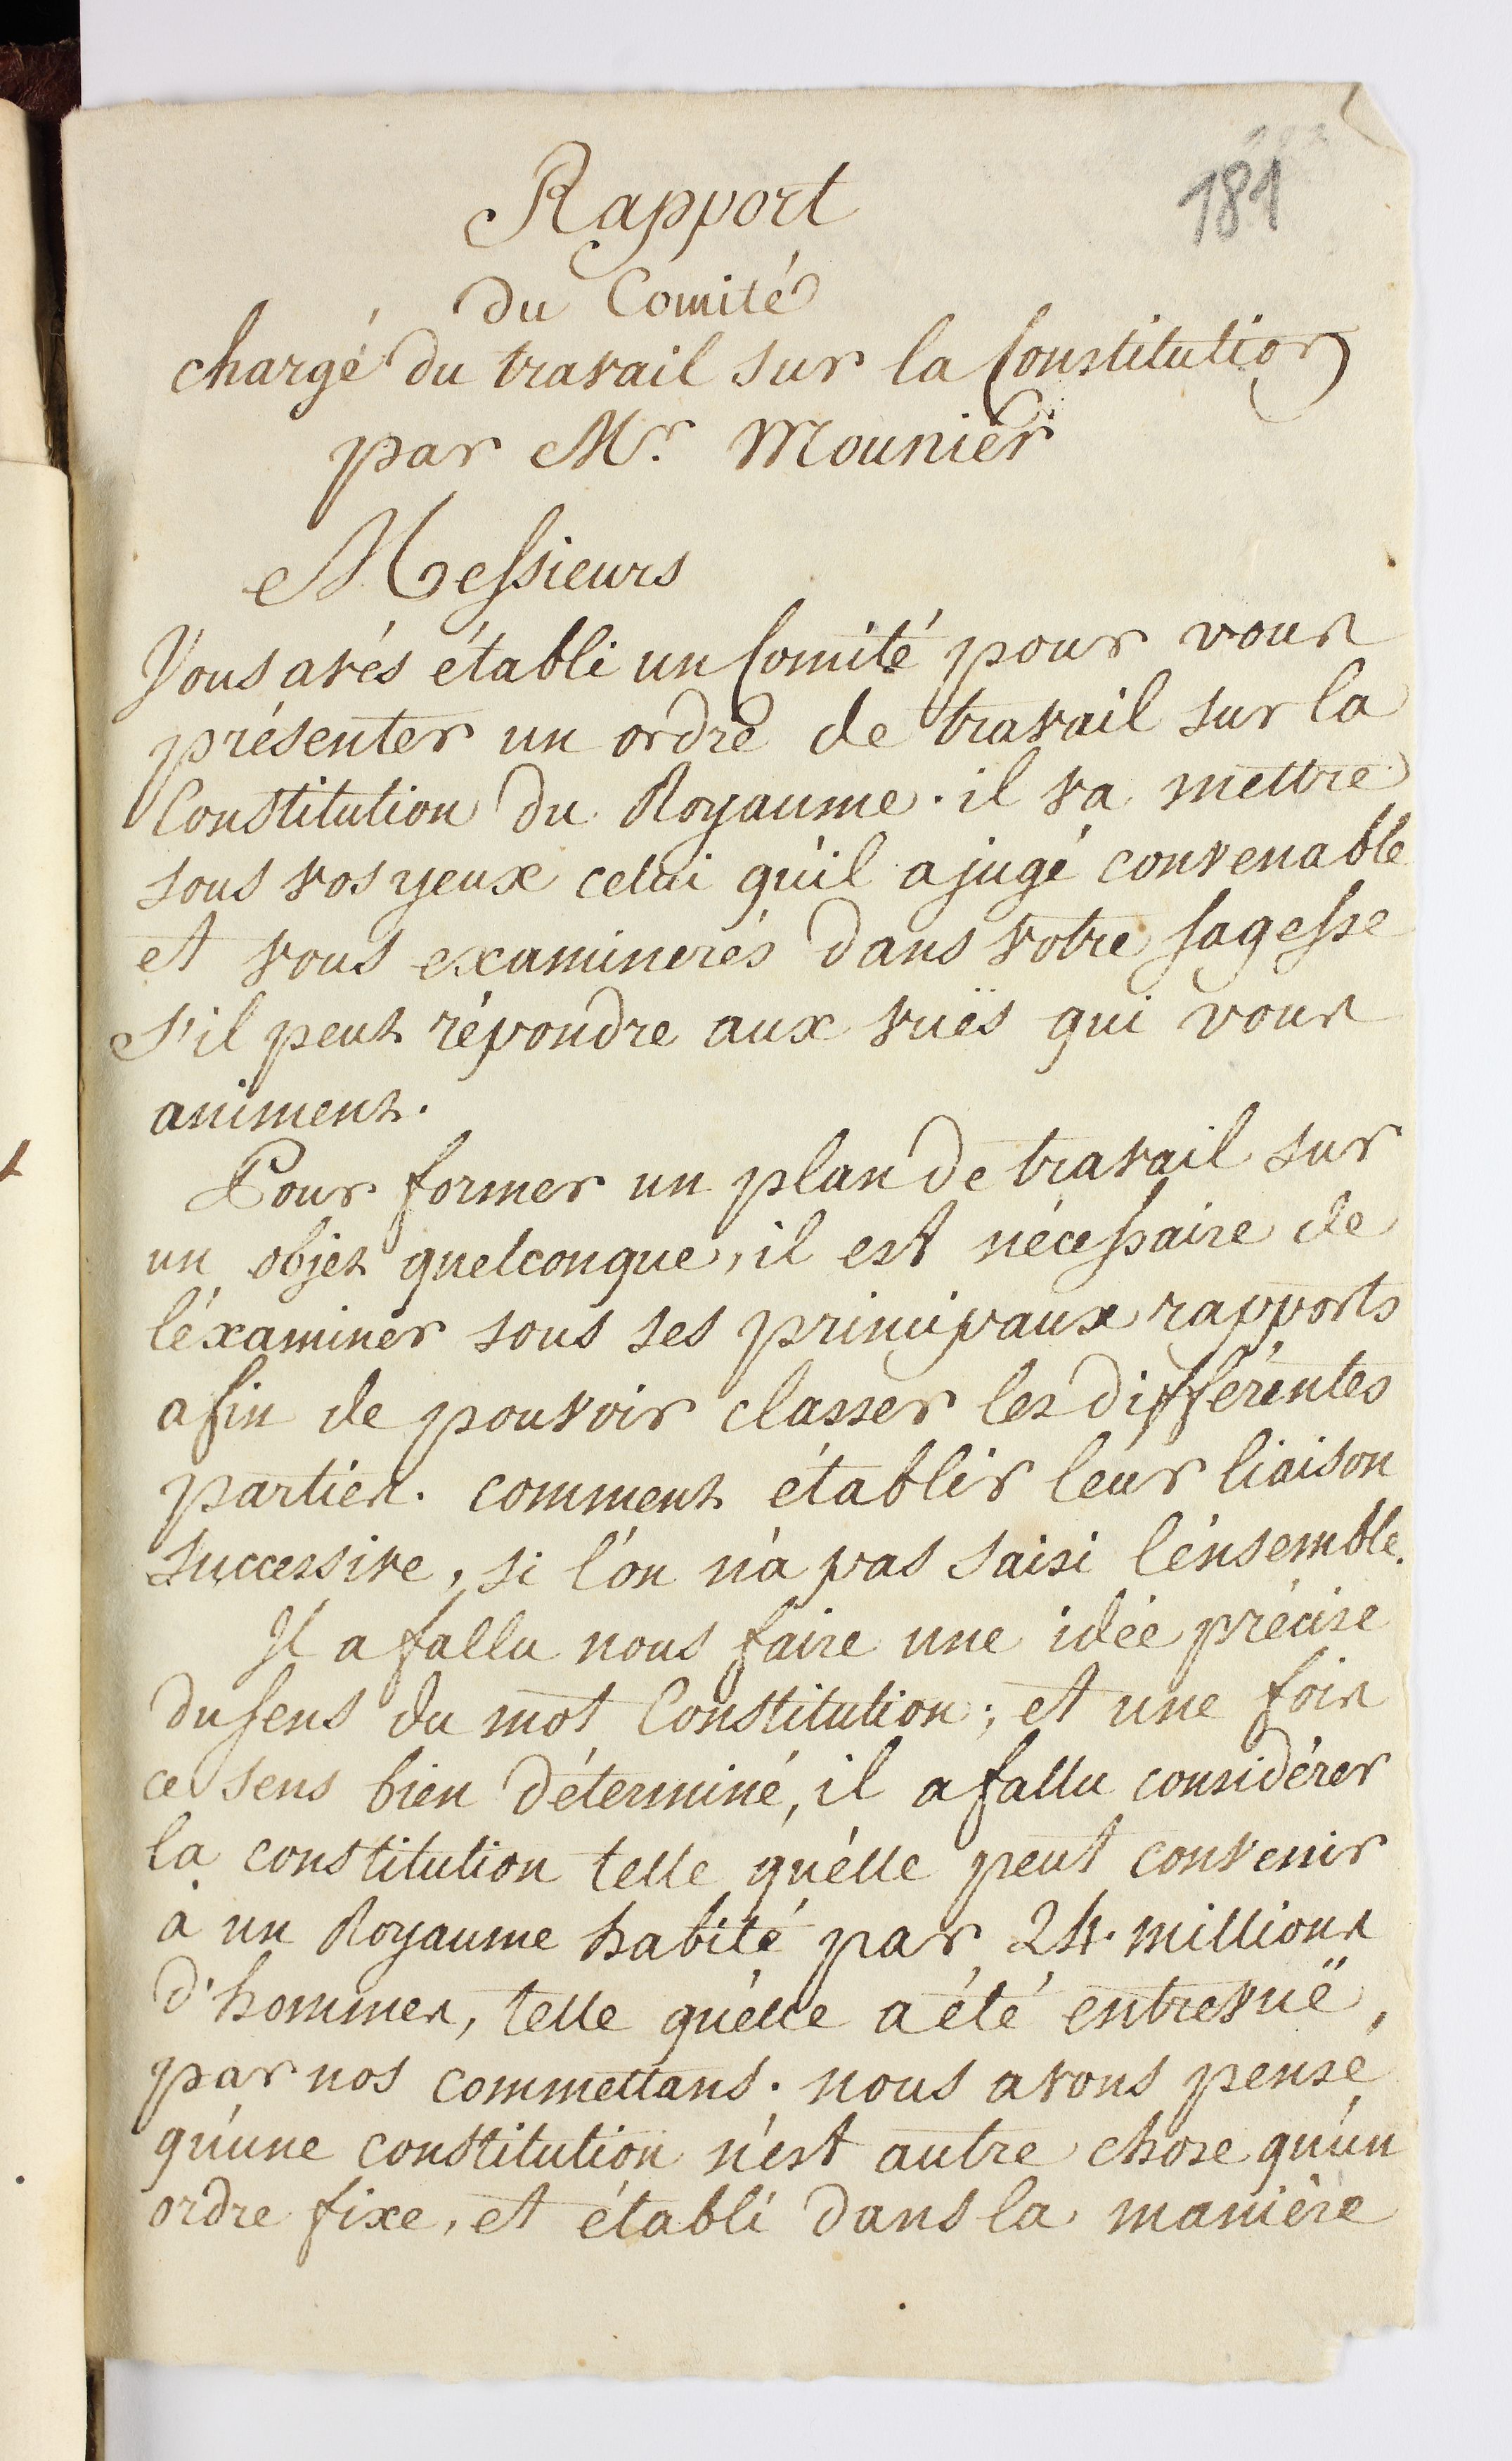 181
Rapport
du Comité
chargé du travail sur la Constitution
par Mr. Mounier
Messieurs
Vous avés établi un Comité pour vous
présenter un ordre de travail sur la
Constitution du Royaume. il va mettre
sous vos yeux celui qu'il a jugé convenable
et vous examinerés dans votre sagesse
s'il peut répondre aux vuës qui vous
animent.
Pour former un plan de travail sur
un objet quelconque, il est nécessaire de
l'éxaminer sous ses principaux rapports
afin de pouvoir classer les différentes
parties. comment établir leur liaison
successive, si l'on n'a pas saisi l'énsemble.
Il a fallu nous faire une idée précise
du sens du mot Constitution; et une fois
ce sens bien déterminé, il a fallu considérer
la constitution telle qu'élle peut convenir
à un Royaume habité par 24. millions
d'hommes, telle qu'élle a été entrevuë,
par nos commettans. nous avons pensé
qu'une constitution n'est autre chose qu'un
ordre fixe, et établi dans la manière